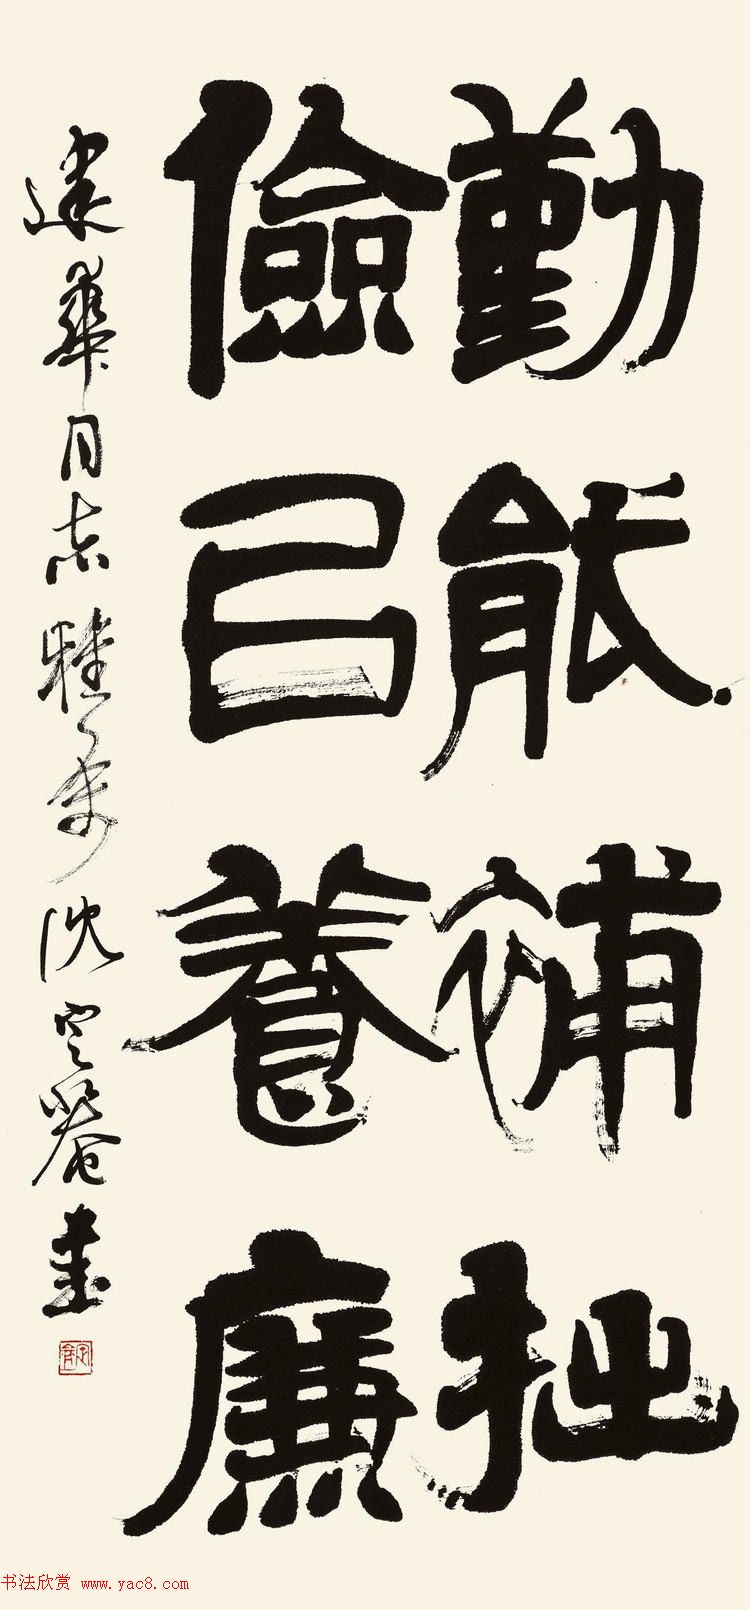 勤能補拙
儉㠯養廉
建華同志雅屬 沈定菴書
书法欣赏 www.yac8.com